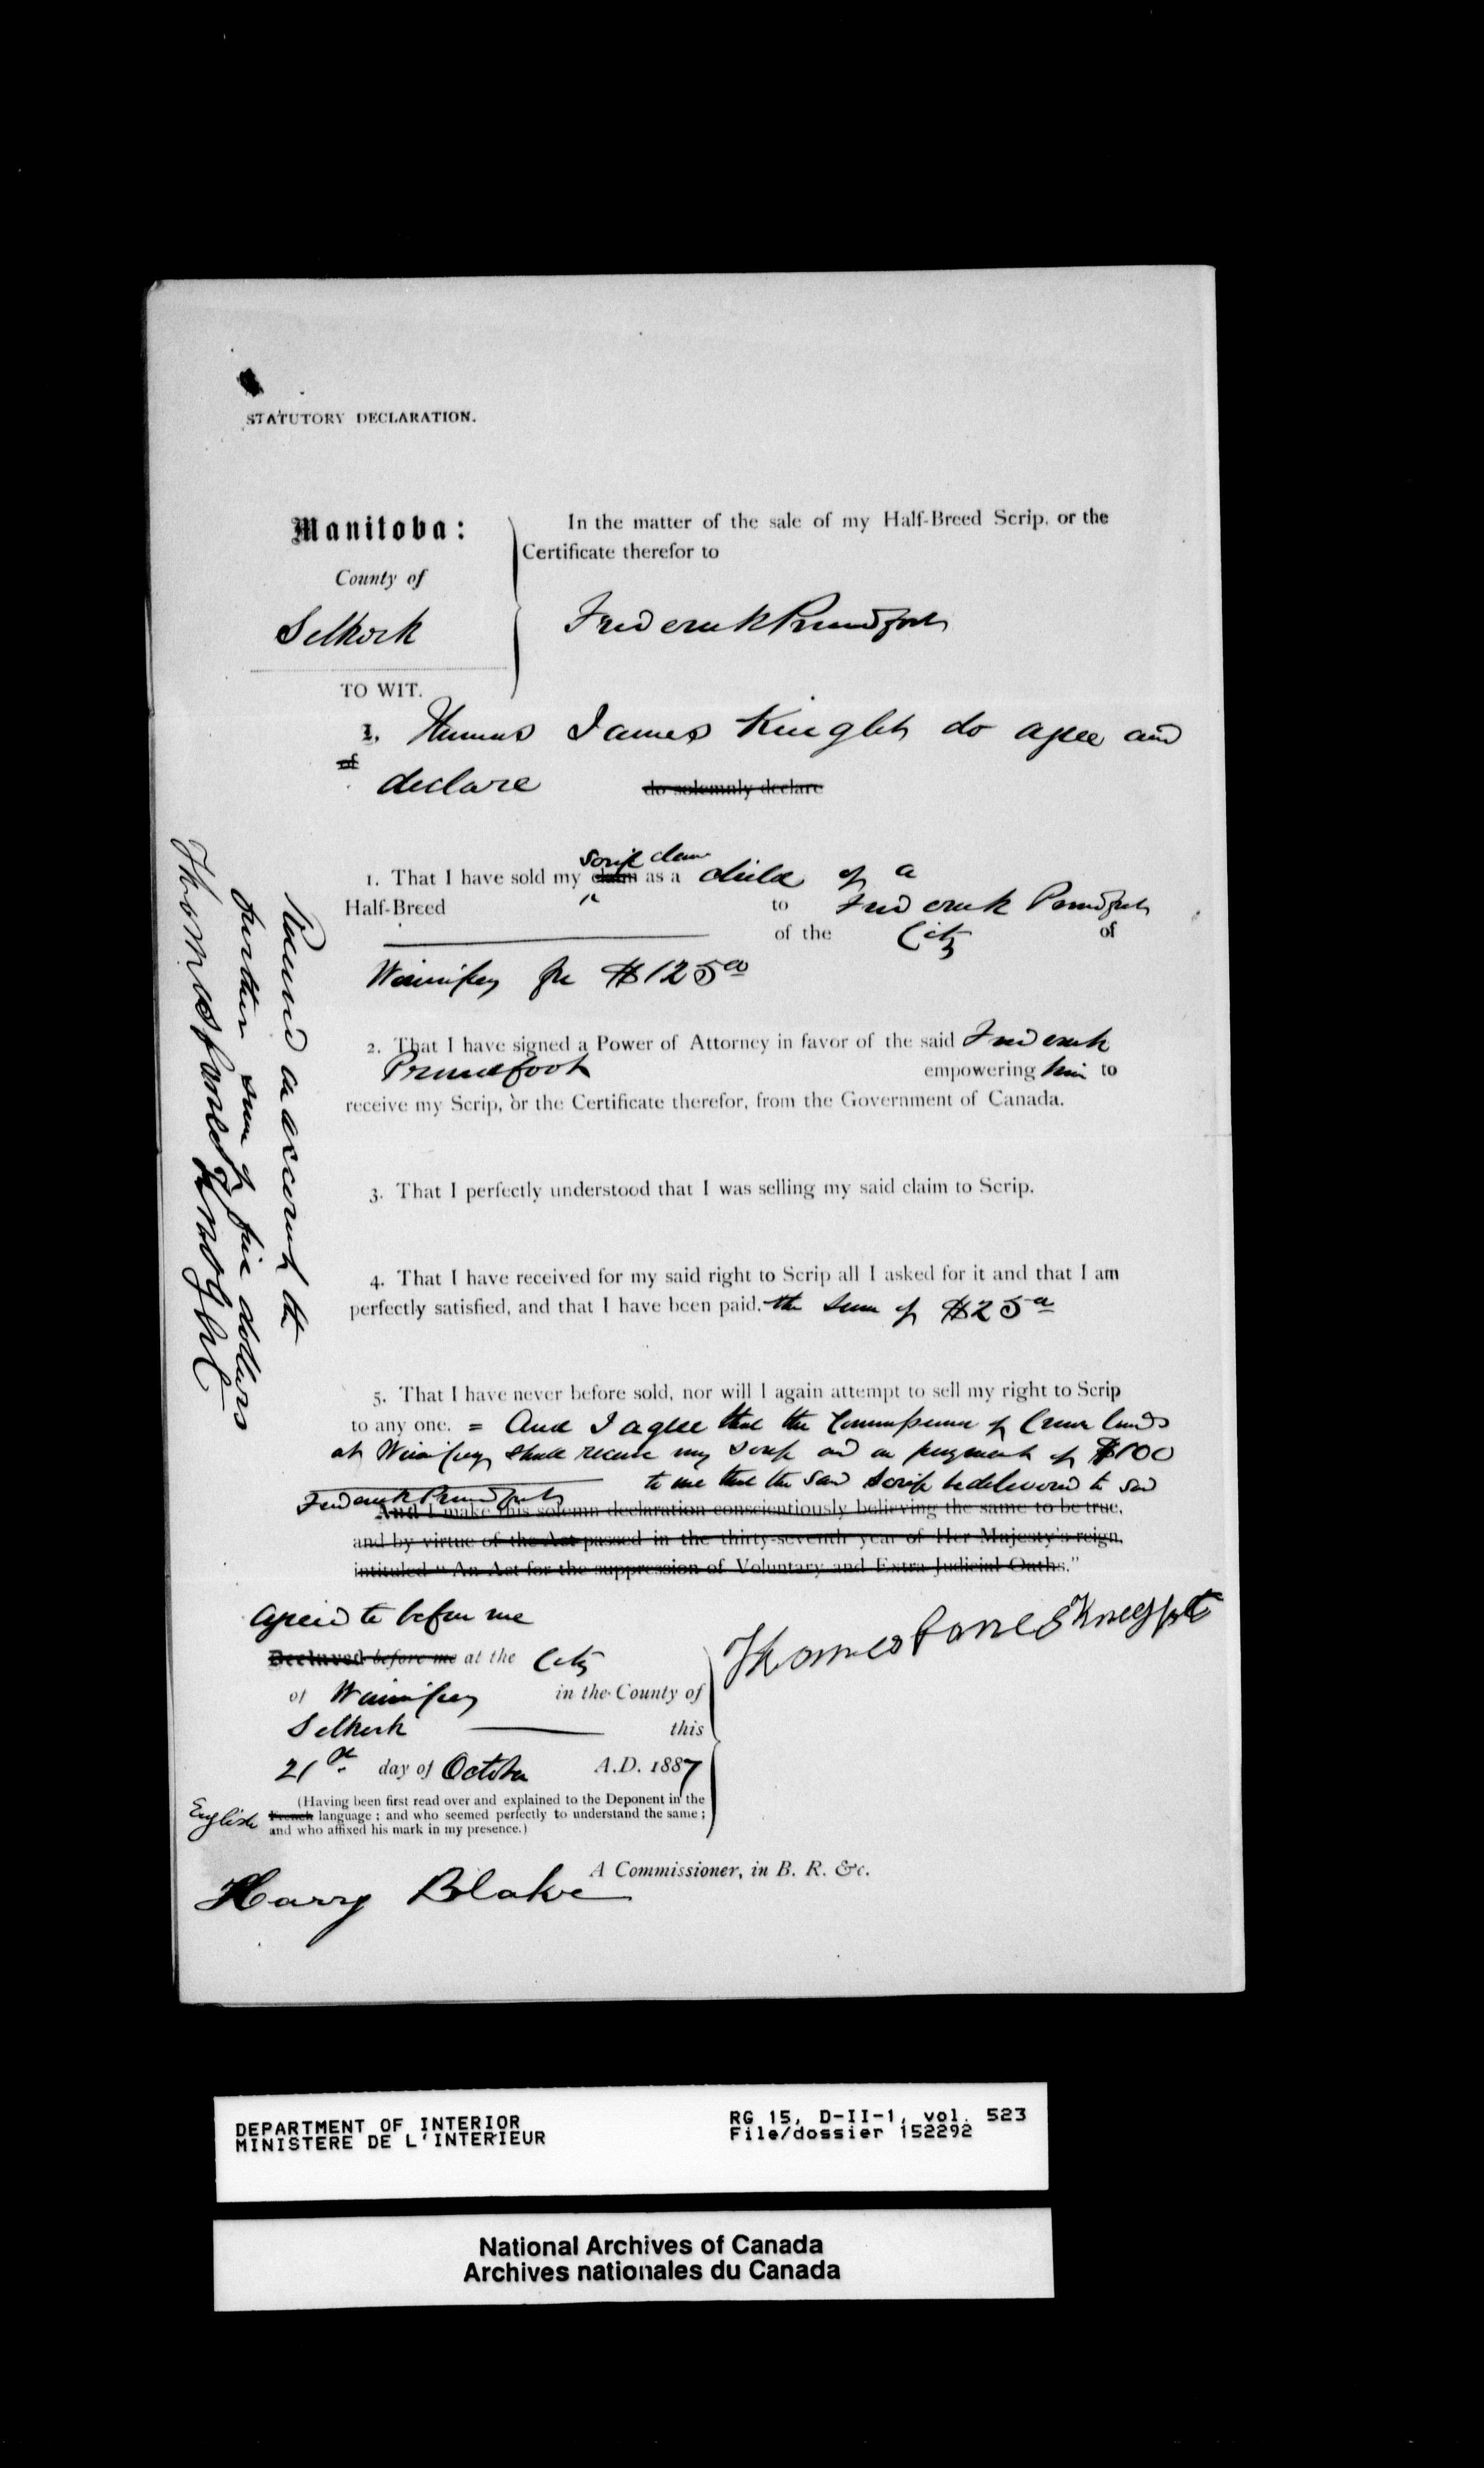 STATUTORY DECLARATION.
Manitoba:
County of
Selkirk
TO WIT.
In the matter of the sale of my Half-Breed Scrip, or the
Certificate therefor to
Frederick Proudfoot
I, Thomas James Knight do agree and
of
declare do solemnly declare
scrip claim
1. That I have sold my claim as a child of a
Half-Breed to Frederick Proudfoot
of the City of
Winnipeg for $125.00
2. That I have signed a Power of Attorney in favor of the said Frederick
Proudfoot empowering him to
receive my Scrip, or the Certificate therefor, from the Government of Canada.
3. That I perfectly understood that I was selling my said claim to Scrip.
4. That I have received for my said right to Scrip all I asked for it and that I am
perfectly satisfied, and that I have been paid. the sum of $25.00
5. That I have never before sold, nor will I again attempt to sell my right to Scrip
to any one. = And I agree that the Commissioner of Crown lands
at Winnipeg shall receive my scrip and on payment of $100
to me that the said scrip be delivered to said
Frederick Proudfoot
And I make this solemn declaration conscientiously believing the same to be true,
and by virtue of the Act passed in the thirty-seventh year of Her Majesty's reign,
intituled "An Act for the suppression of Voluntary and Extra Judicial Oaths."
Agreed to before me
Declared before me at the City
of Winnipeg in the County of
Selkirk this
21st day of October A.D. 1887
(Having been first read over and explained to the Deponent in the
English French language; and who seemed perfectly to understand the same;
and who affixed his mark in my presence.)
Thomas James Knight
A Commissioner, in B. R. &c.
Harry Blake
Received on account the
further sum of five dollars
Thomas James Knight
DEPARTMENT OF INTERIOR
MINISTERE DE L'INTERIEUR
RG 15, D-II-1, vol. 523
File/dossier 152292
National Archives of Canada
Archives nationales du Canada